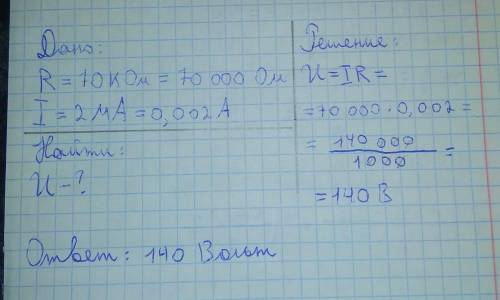 Дано:
R = 70 кОм = 70 000 Ом
I = 2 мА = 0,002 А
Найти:
U - ?
Решение:
U = IR =
= 70 000 · 0,002 =
= 140 000 / 1000 =
= 140 В
Ответ: 140 Вольт